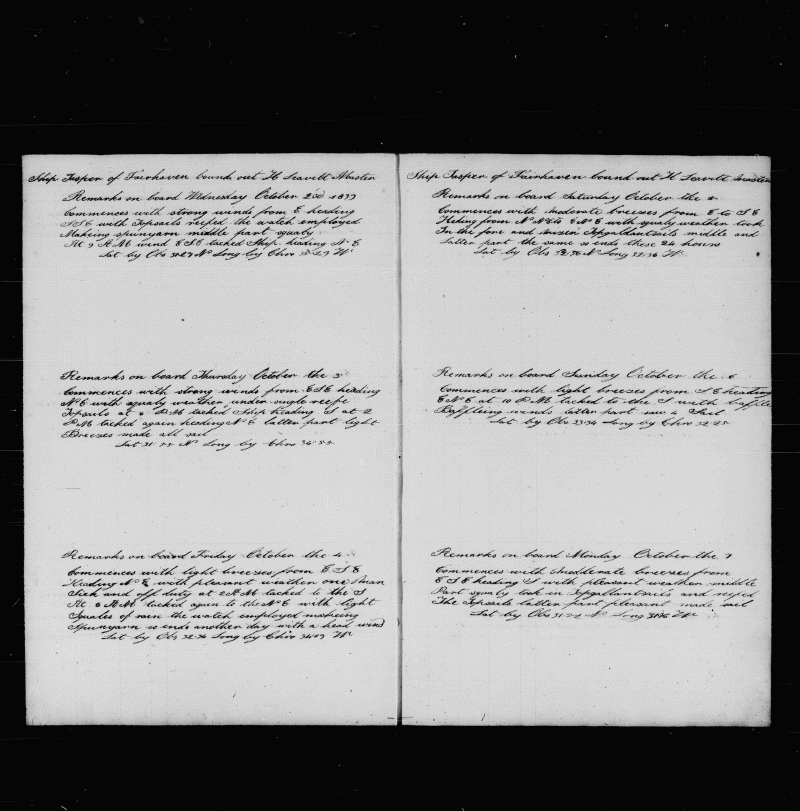 Ship Jasper of Fairhaven bound out H Leavitt Master
Remarks on board Wednesday October 2nd 1839
Commences with strong winds from E heading
SSE with Topsails reefed the watch employed
Makeing spunyarn middle part squaly
At 9 AM wind ESE tacked Ship heading N E
Lat by Obs 31-27 N Long by Chro 35-29 W
Remarks on board Thursday October the 3
Commences with strong winds from ESE heading
NE with squaly weather under single reefe
Topsails at PM tacked Ship heading S at 2
PM tacked again heading NE latter part light
Breezes made all sail
Lat 31-55 N Long by Chro 34-55
Remarks on board Friday October the 4
Commences with light breezes from ESE
Heading NE with pleasant weather one man
Sick and off duty at 2 AM tacked to the S
At 6 AM tacked again to the NE with light
Squales of rain the watch employed makeing
Spunyarn so ends another day with a head wind
Lat by Obs 32-36 Long by Chro 34-09 W
Ship Jasper of Fairhaven bound out H Leavitt Master
Remarks on board Saturday October the 5
Commences with Moderate breezes from E to SE
Heding from NNE to ENE with squaly weather took
In the fore and mizen Topgallantsails middle and
Latter part the same so ends these 24 hours
Lat by Obs 32-36 N Long 32-36 W
Remarks on board Sunday October the 6
Commences with light breezes from SE heading
ENE at 10 PM tacked to the S with baffle
Baffleing winds latter part saw 4 Sail
Lat by Obs 33-34 Long by Chro 32-25
Remarks on board Monday October the 7
Commences with Modderate breezes from
ESE heading S with pleasant weather middle
Part squaly took in Topgallantsails and reefed
The Topsails latter part pleasant made sail
Lat by Obs 31- N Long W